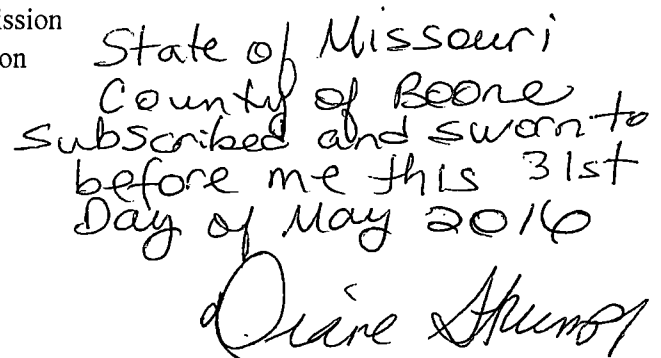 ission
on
State of Missouri
County of Boone
Subscribed and sworn to
before me this 31st
Day of May 2016
Diane